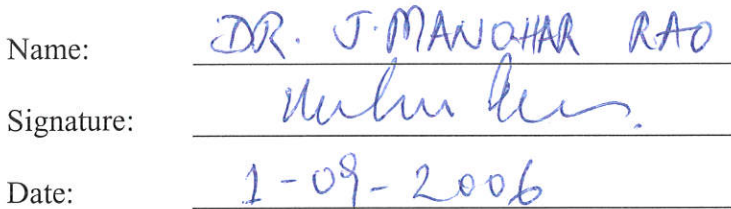 Name: DR. J. MANOHAR RAO
Signature:
Date: 1-09-2006